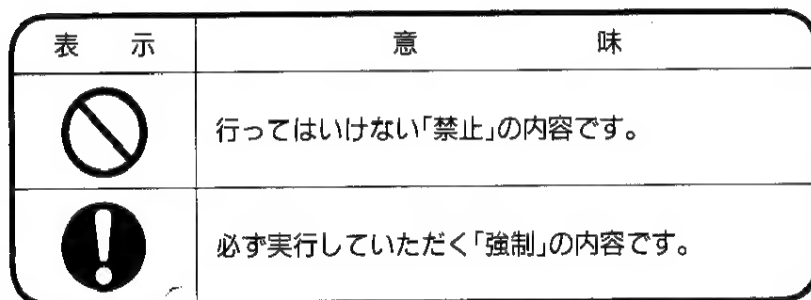 表 示 意 味
行ってはいけない「禁止」の内容です。
必ず実行していただく「強制」の内容です。